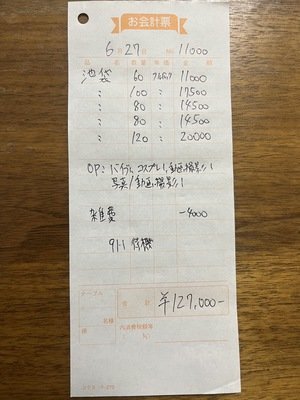 お会計票
6月27日 No. 11000
品名 数量 単価 金額
池袋 60 11000
〃 100 〃 17500
〃 80 〃 14500
〃 80 〃 14500
〃 120 〃 20000
OP: バイブ1, コスプレ1, 動画撮影1
写真/動画撮影1
雑費 -4000
9H 待機
テーブル
合計 ¥127,000-
名様
様
内消費税額等